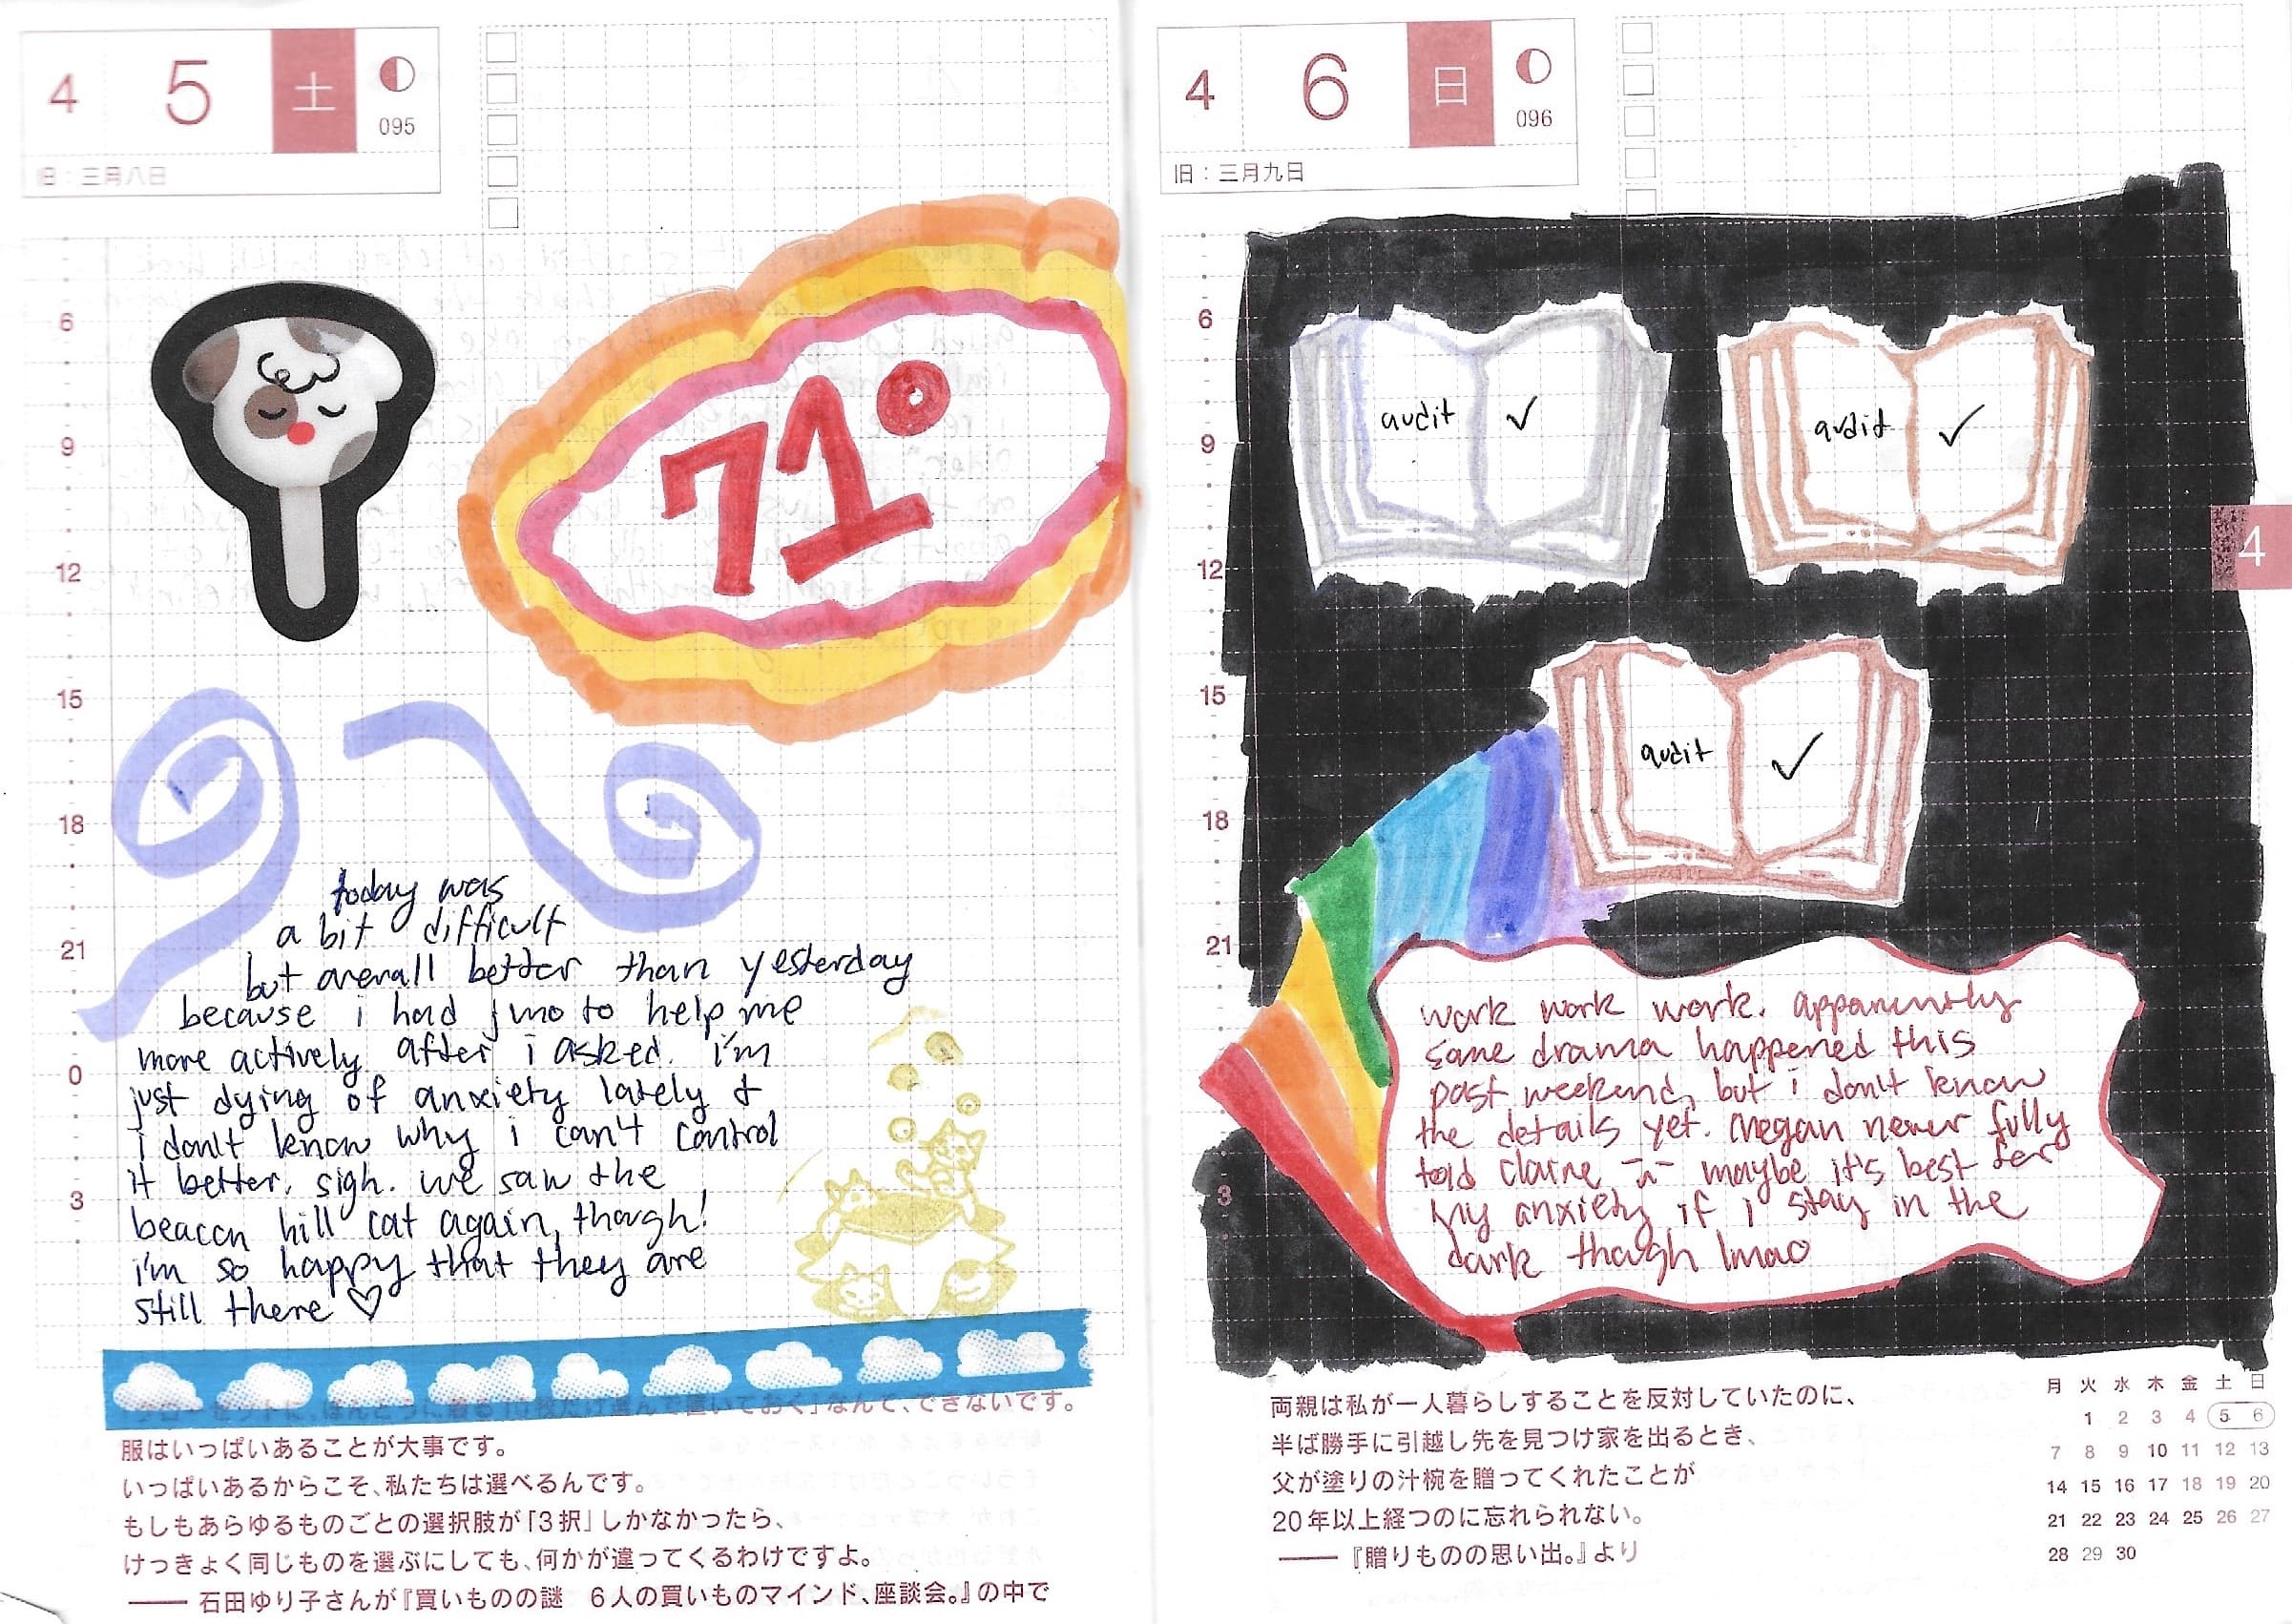 4 5 土
095
旧：三月八日
71°
6
9
12
15
18
21
0
3
today was
a bit difficult
but overall better than yesterday
because i had juno to help me
more actively after i asked. i'm
just dying of anxiety lately &
i don't know why i can't control
it better. sigh. we saw the
beacon hill cat again, though!
i'm so happy that they are
still there ♡
「クローゼットに、ほんとうに着る10枚だけ選んで置いておく」なんて、できないです。
服はいっぱいあることが大事です。
いっぱいあるからこそ、私たちは選べるんです。
もしもあらゆるものごとの選択肢が「3択」しかなかったら、
けっきょく同じものを選ぶにしても、何かが違ってくるわけですよ。
―― 石田ゆり子さんが『買いものの謎　6人の買いものマインド、座談会。』の中で
4 6 日
096
旧：三月九日
6
9
12
15
18
21
3
4
audit ✓
audit ✓
audit ✓
work work work. apparently
some drama happened this
past weekend, but i don't know
the details yet. megan never fully
told claire ㅠ maybe it's best for
my anxiety if i stay in the
dark though lmao
両親は私が一人暮らしすることを反対していたのに、
半ば勝手に引越し先を見つけ家を出るとき、
父が塗りの汁椀を贈ってくれたことが
20年以上経つのに忘れられない。
―― 『贈りものの思い出。』より
月 火 水 木 金 土 日
1 2 3 4 5 6
7 8 9 10 11 12 13
14 15 16 17 18 19 20
21 22 23 24 25 26 27
28 29 30